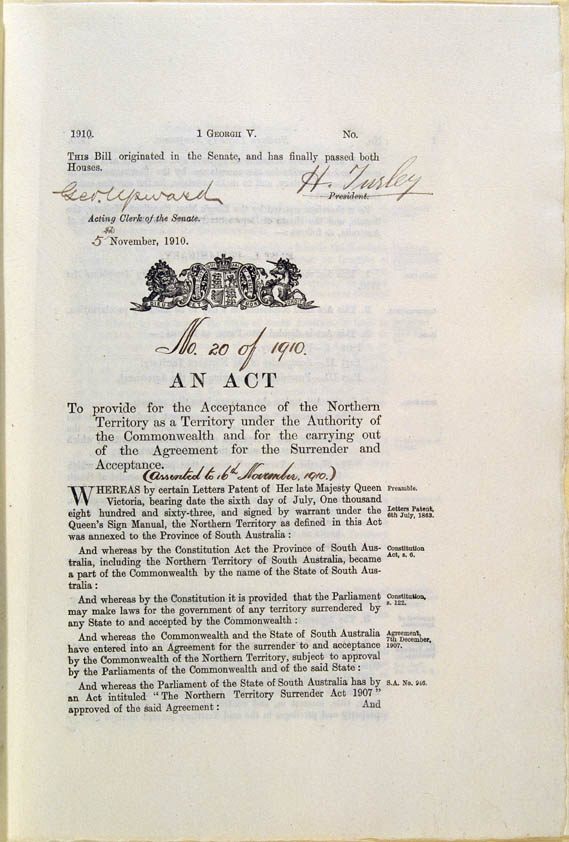 1910. 1 GEORGII V. No.
THIS Bill originated in the Senate, and has finally passed both
Houses.
Geo. Upward
H. Turley
President.
Acting Clerk of the Senate.
5th November, 1910.
No. 20 of 1910.
AN ACT
To provide for the Acceptance of the Northern
Territory as a Territory under the Authority of
the Commonwealth and for the carrying out
of the Agreement for the Surrender and
Acceptance.
(Assented to 16th November, 1910.)
WHEREAS by certain Letters Patent of Her late Majesty Queen
Preamble.
Victoria, bearing date the sixth day of July, One thousand
eight hundred and sixty-three, and signed by warrant under the
Letters Patent,
6th July, 1863.
Queen's Sign Manual, the Northern Territory as defined in this Act
was annexed to the Province of South Australia :
And whereas by the Constitution Act the Province of South Aus-
Constitution
Act, s. 6.
tralia, including the Northern Territory of South Australia, became
a part of the Commonwealth by the name of the State of South Aus-
tralia :
And whereas by the Constitution it is provided that the Parliament
Constitution,
s. 122.
may make laws for the government of any territory surrendered by
any State to and accepted by the Commonwealth :
And whereas the Commonwealth and the State of South Australia
Agreement,
7th December,
1907.
have entered into an Agreement for the surrender to and acceptance
by the Commonwealth of the Northern Territory, subject to approval
by the Parliaments of the Commonwealth and of the said State :
And whereas the Parliament of the State of South Australia has by
S.A. No. 946.
an Act intituled “ The Northern Territory Surrender Act 1907 ”
approved of the said Agreement : And